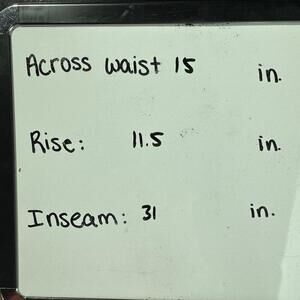 Across waist 15 in.
Rise: 11.5 in.
Inseam: 31 in.